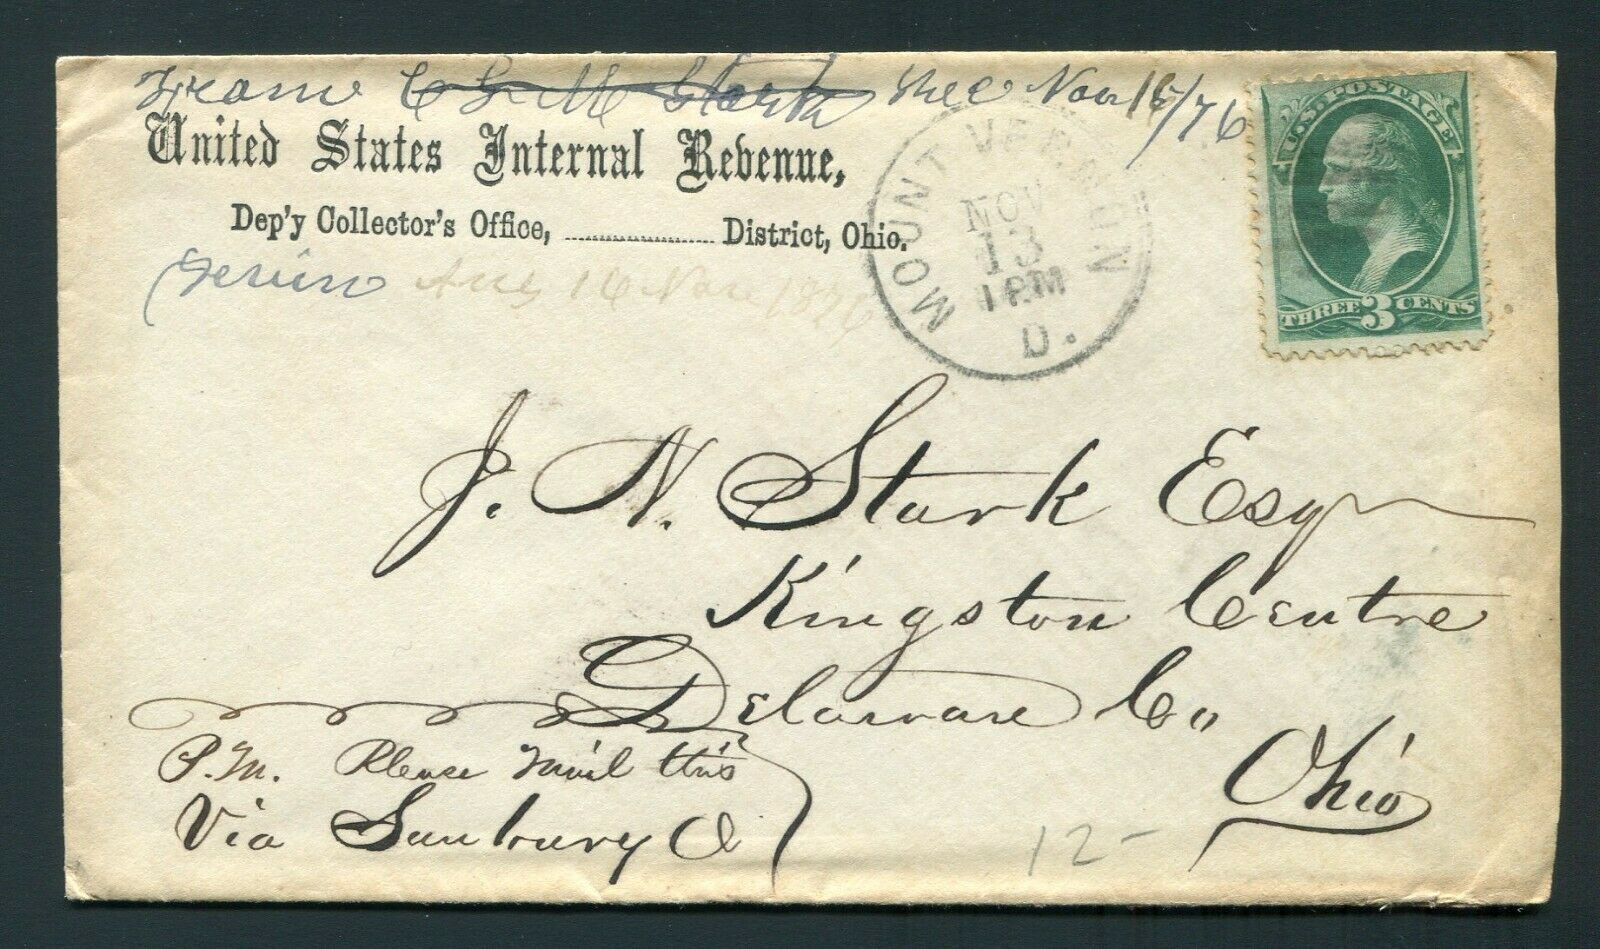 Stark Nov 15/76
United States Internal Revenue,
Dep'y Collector's Office, .................... District, Ohio.
16 Nov 1876
MOUNT VERNON
NOV
13
1 PM
O.
U.S. POSTAGE
THREE 3 CENTS
J. N. Stark Esq
Kingston Centre
Delaware Co
Ohio
P.M. Please mail this
Via Sunbury O
12-